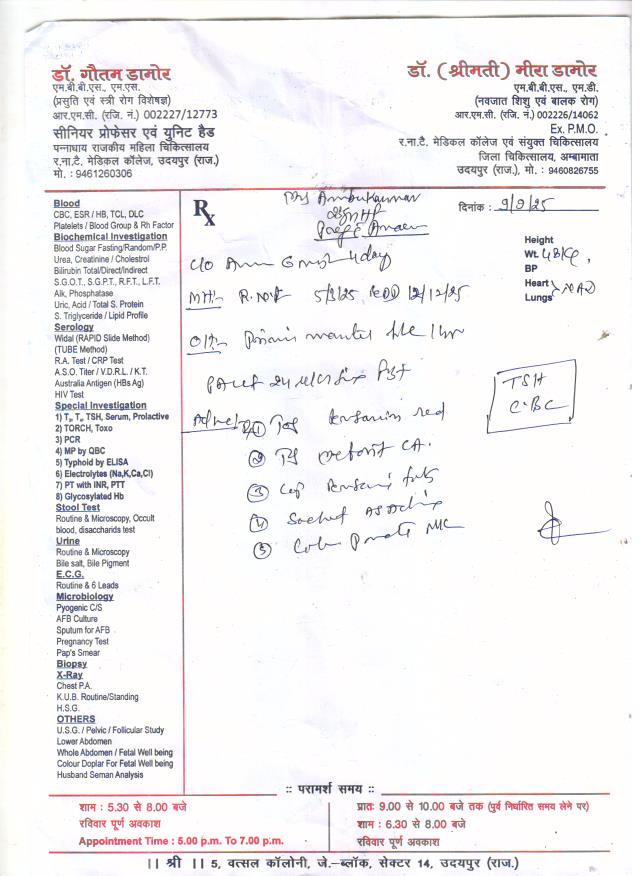 डॉ. गौतम डामोर
एम.बी.बी.एस., एम.एस.
(प्रसुति एवं स्त्री रोग विशेषज्ञ)
आर.एम.सी. (रजि. नं.) 002227/12773
सीनियर प्रोफेसर एवं युनिट हैड
पन्नाधाय राजकीय महिला चिकित्सालय
र.ना.टै. मेडिकल कॉलेज, उदयपुर (राज.)
मो. : 9461260306
डॉ. (श्रीमती) मीरा डामोर
एम.बी.बी.एस., एम.डी.
(नवजात शिशु एवं बालक रोग)
आर.एम.सी. (रजि. नं.) 002226/14062
Ex. P.M.O.
र.ना.टै. मेडिकल कॉलेज एवं संयुक्त चिकित्सालय
जिला चिकित्सालय, अम्बामाता
उदयपुर (राज.), मो. : 9460826755
Blood
CBC, ESR / HB, TCL, DLC
Platelets / Blood Group & Rh Factor
Biochemical Investigation
Blood Sugar Fasting/Random/P.P.
Urea, Creatinine / Cholestrol
Bilirubin Total/Direct/Indirect
S.G.O.T., S.G.P.T., R.F.T., L.F.T.
Alk, Phosphatase
Uric, Acid / Total S. Protein
S. Triglyceride / Lipid Profile
Serology
Widal (RAPID Slide Method)
(TUBE Method)
R.A. Test / CRP Test
A.S.O. Titer / V.D.R.L. / K.T.
Australia Antigen (HBs Ag)
HIV Test
Special Investigation
1) T₃, T₄, TSH, Serum, Prolactive
2) TORCH, Toxo
3) PCR
4) MP by QBC
5) Typhoid by ELISA
6) Electrolytes (Na,K,Ca,Cl)
7) PT with INR, PTT
8) Glycosylated Hb
Stool Test
Routine & Microscopy, Occult
blood, disaccharids test
Urine
Routine & Microscopy
Bile salt, Bile Pigment
E.C.G.
Routine & 6 Leads
Microbiology
Pyogenic C/S
AFB Culture
Sputum for AFB
Pregnancy Test
Pap's Smear
Biopsy
X-Ray
Chest P.A.
K.U.B. Routine/Standing
H.S.G.
OTHERS
U.S.G. / Pelvic / Follicular Study
Lower Abdomen
Whole Abdomen / Fetal Well being
Colour Doplar For Fetal Well being
Husband Seman Analysis
Rx
दिनांक : 9/9/25
Height
Wt. 48 kg,
BP
Heart
Lungs NAD
C/o
5/3/25 EDD 12/12/25
TSH
CBC
①
②
③ Cap
④ Sachet
⑤
:: परामर्श समय ::
शाम : 5.30 से 8.00 बजे
रविवार पूर्ण अवकाश
Appointment Time : 5.00 p.m. To 7.00 p.m.
प्रातः 9.00 से 10.00 बजे तक (पुर्व निर्धारित समय लेने पर)
शाम : 6.30 से 8.00 बजे
रविवार पूर्ण अवकाश
।। श्री ।। 5, वत्सल कॉलोनी, जे.–ब्लॉक, सेक्टर 14, उदयपुर (राज.)